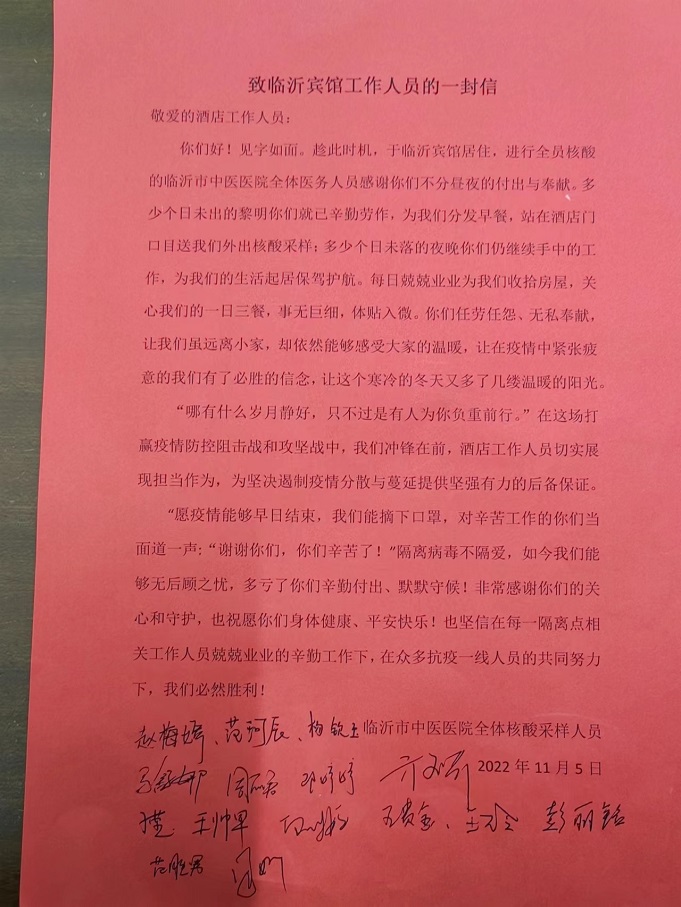 致临沂宾馆工作人员的一封信
敬爱的酒店工作人员：
你们好！见字如面。趁此时机，于临沂宾馆居住，进行全员核酸
的临沂市中医医院全体医务人员感谢你们不分昼夜的付出与奉献。多
少个日未出的黎明你们就已辛勤劳作，为我们分发早餐，站在酒店门
口目送我们外出核酸采样；多少个日未落的夜晚你们仍继续手中的工
作，为我们的生活起居保驾护航。每日兢兢业业为我们收拾房屋，关
心我们的一日三餐，事无巨细，体贴入微。你们任劳任怨、无私奉献，
让我们虽远离小家，却依然能够感受大家的温暖，让在疫情中紧张疲
惫的我们有了必胜的信念，让这个寒冷的冬天又多了几缕温暖的阳光。
“哪有什么岁月静好，只不过是有人为你负重前行。”在这场打
赢疫情防控阻击战和攻坚战中，我们冲锋在前，酒店工作人员切实展
现担当作为，为坚决遏制疫情分散与蔓延提供坚强有力的后备保证。
“愿疫情能够早日结束，我们能摘下口罩，对辛苦工作的你们当
面道一声：“谢谢你们，你们辛苦了！”隔离病毒不隔爱，如今我们能
够无后顾之忧，多亏了你们辛勤付出、默默守候！非常感谢你们的关
心和守护，也祝愿你们身体健康、平安快乐！也坚信在每一隔离点相
关工作人员兢兢业业的辛勤工作下，在众多抗疫一线人员的共同努力
下，我们必然胜利！
赵梅婷、范珂辰、杨钦玉 临沂市中医医院全体核酸采样人员
邓婷婷 2022 年 11 月 5 日
王帅军 彭丽铭
范胜男